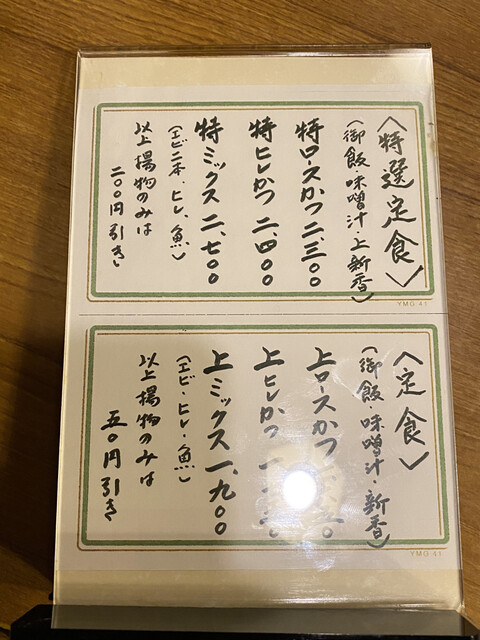 〈特選定食〉
(御飯・味噌汁・上新香)
特ロースかつ 二、三〇〇
特ヒレかつ 二、四〇〇
特ミックス 二、七〇〇
(エビ二本、ヒレ、魚)
以上揚物のみは
二〇〇円引き
YMG 41
〈定食〉
(御飯・味噌汁・新香)
上ロースかつ
上ヒレかつ 一、
上ミックス 一、九〇〇
(エビ・ヒレ・魚)
以上揚物のみは
五〇円引き
YMG 41